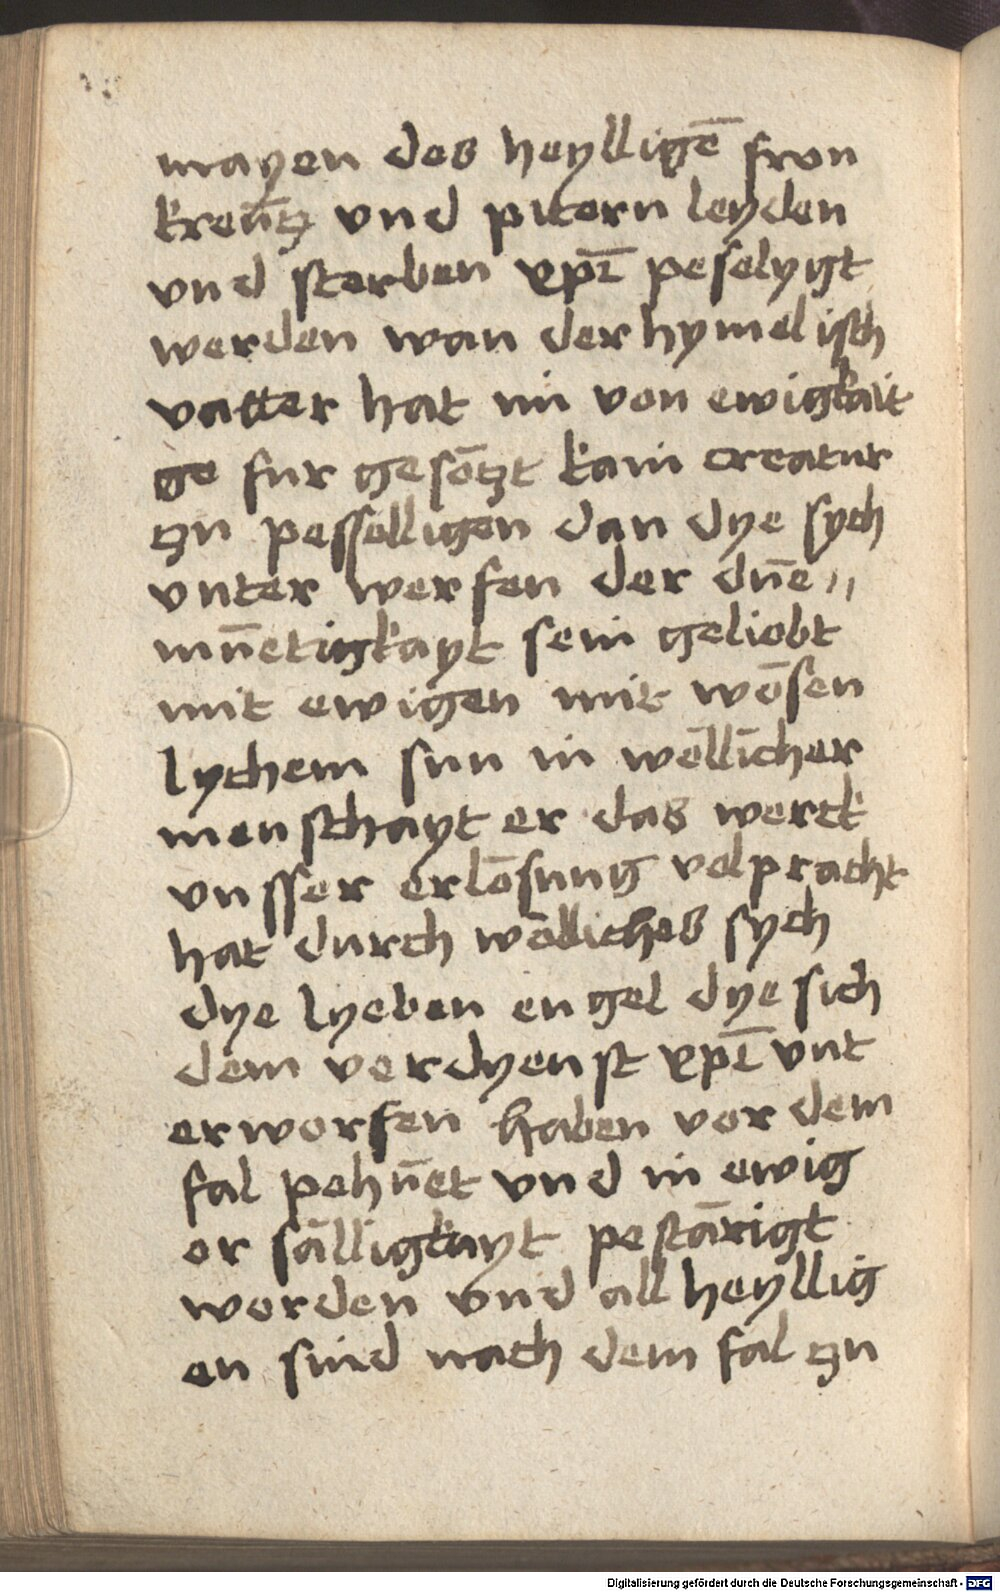 mayen des heylligē fron
kreūtz vnd pitern leyden
vnd sterben xpī peselygt
werden wan der hymelisch
vatter hat im von ewigkait
ge fur gesōtzt kain creatur
zu pesselligen dan dye sych
vnter werfen der dūe〃
mūetigkayt sein geliebt
mit ewigen mit wōsen
lychem sun in wellicher
menschayt er das werck
vnsser erlōsung volpracht
hat durch wōlliches sych
dye lyeben engel dye sich
dem verdyenst xpī vnt
erworfen haben vor dem
fal pehūet vnd in ewig
er sālligkayt pestārigt
worden vnd all heyllig
en sind nach dem fal zu
Digitalisierung gefördert durch die Deutsche Forschungsgemeinschaft - DFG